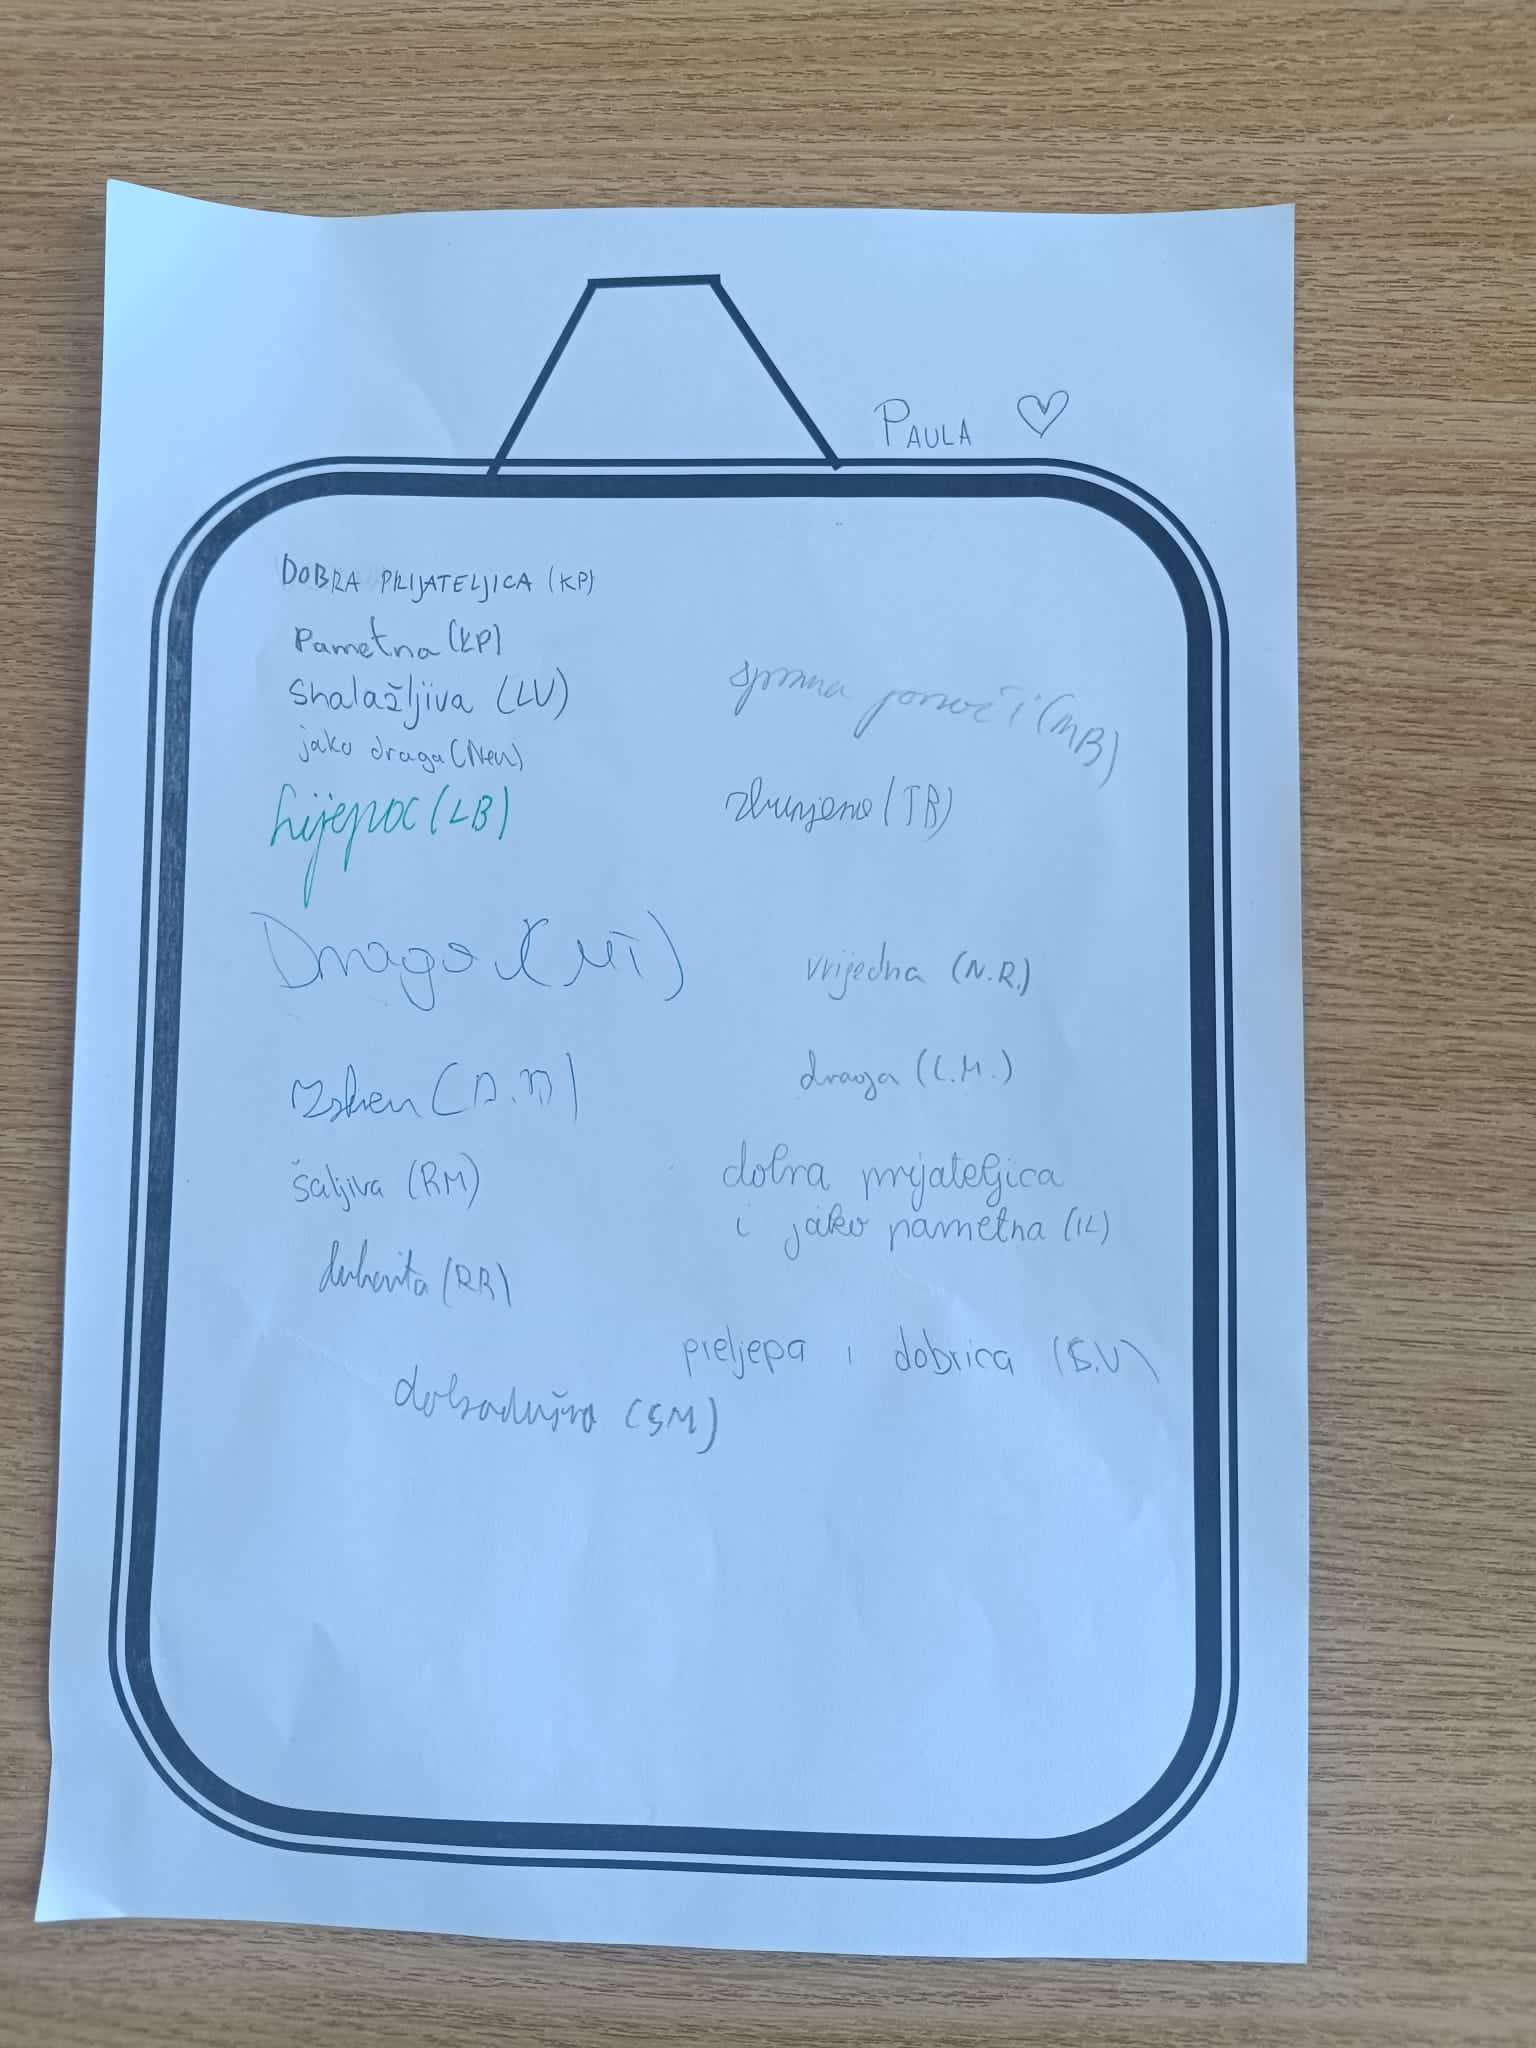 PAULA
DOBRA PRIJATELJICA (KP)
Pametna (KP)
Snalažljiva (LV)
jako draga (Neu)
(LB)
(MT)
šaljiva (RM)
duhovita (RR)
dobrodušna (SM)
spremna pomoći (MB)
zbunjena (TB)
vrijedna (N.R.)
draga (L.M.)
dobra prijateljica
i jako pametna (IL)
preljepa i dobrica (S.V)